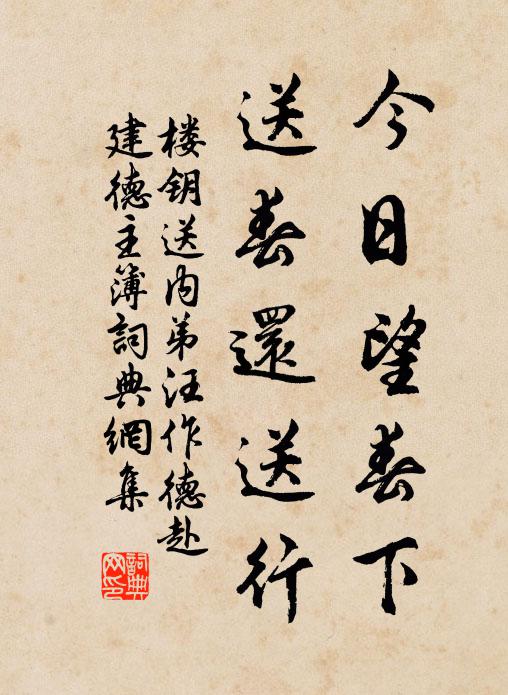 今日望春下
送春還送行
楼钥送内弟汪作德赴
建德主簿詞典網集
詞典網印